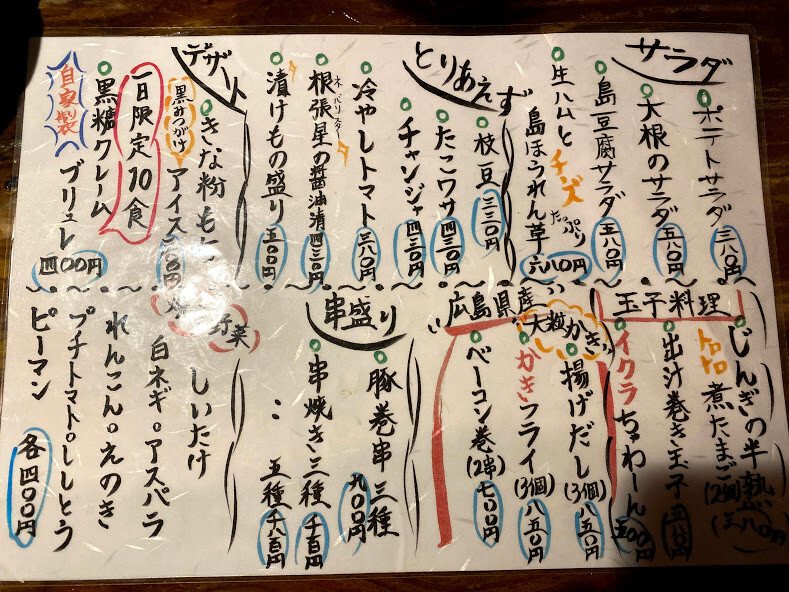 サラダ
ポテトサラダ 三八〇円
大根のサラダ 五八〇円
島豆腐サラダ 五八〇円
生ハムとチーズたっぷり
島ほうれん草 六八〇円
とりあえず
枝豆 三三〇円
たこワサ 四三〇円
チャンジャ 四三〇円
冷やしトマト 三八〇円
ネバリスター
根張星の醤油漬 四三〇円
漬けもの盛り 五〇〇円
デザート
きな粉も
黒みつがけ
アイス
一日限定10食
黒糖クレーム
ブリュレ 四〇〇円
自家製
玉子料理
じんぎの半熟
トロトロ煮たまご(2個)
出汁巻き玉子 五八〇円
イクラちゃわーん 五〇〇円
広島県産
大粒かき
揚げだし(3個) 八五〇円
かきフライ(3個) 八五〇円
ベーコン巻(2串) 七〇〇円
串盛り
豚巻串 三種 九〇〇円
串焼き 三種
〃 五種
野菜
しいたけ
白ネギ。アスパラ
れんこん。えのき
プチトマト。ししとう
ピーマン 各四〇〇円